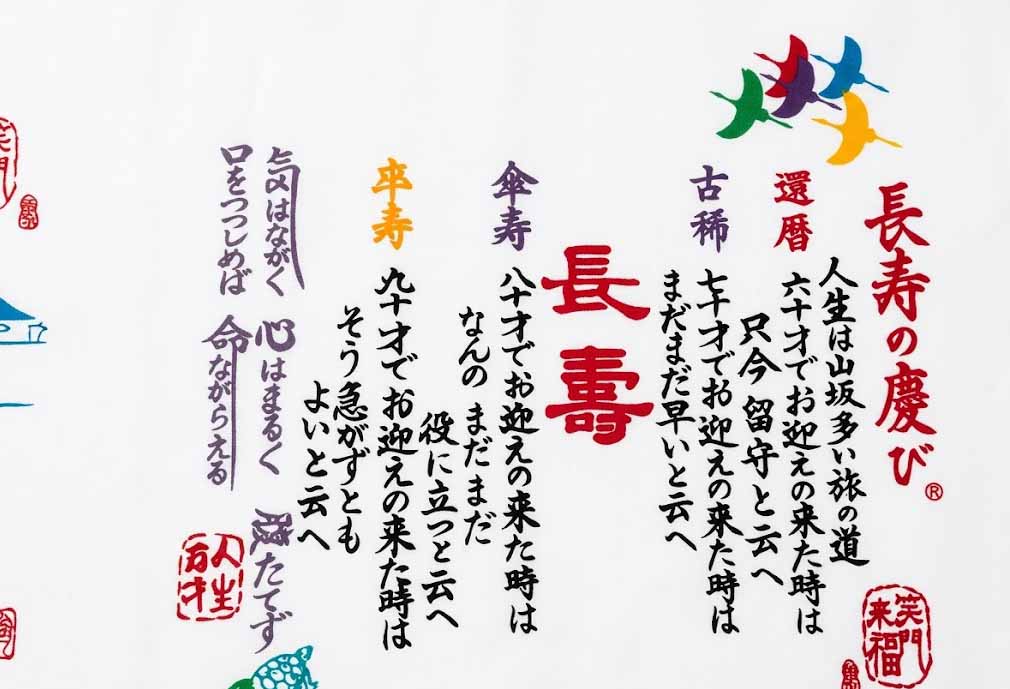 長寿の慶び®
人生は山坂多い旅の道
還暦
六十才でお迎えの来た時は
只今 留守と云へ
古稀
七十才でお迎えの来た時は
まだまだ早いと云へ
長壽
傘寿
八十才でお迎えの来た時は
なんの まだまだ
役に立つと云へ
卒寿
九十才でお迎えの来た時は
そう急がずとも
よいと云へ
気はながく 心はまるく 腹たてず
口をつつしめば 命ながらえる
人生
万才
笑門
来福